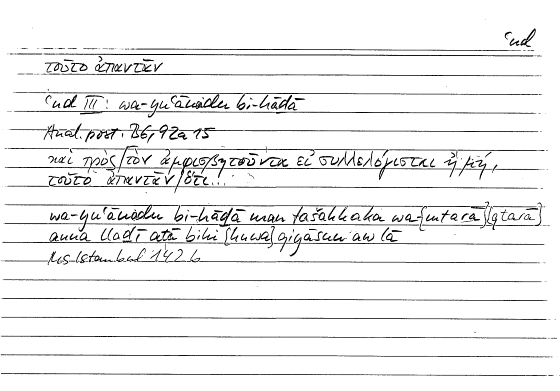 ʿnd
τοῦτο ἀπαντᾶν
ʿnd III: wa-yuʿānadu bi-hāḏā
Anal. post. B6, 92a 15
καὶ πρὸς/τὸν ἀμφισβητοῦντα εἰ συλλελόγισται ἢ μή,
τοῦτο ἀπαντᾶν/ὅτι...
wa-yuʿānadu bi-hāḏā man tašakkaka wa-{mtarā}[qtarā]
anna llaḏī atā bihi {huwa} qiyāsun aw lā
Ms Istanbul 142b